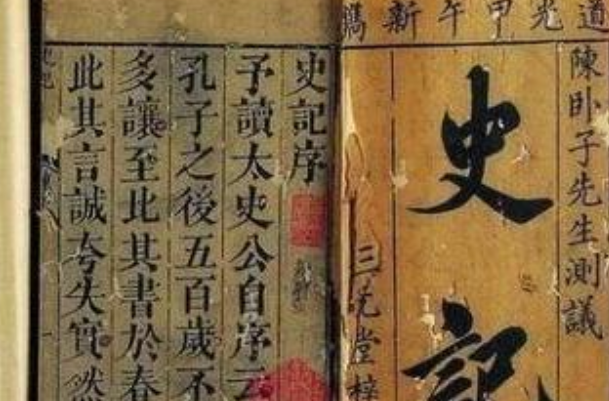 道光甲午新鐫
陳卧子先生測議
史記
三元堂梓
史記序
予讀太史公自序云
孔子之後五百歲不
多讓至此其書於春
此其言誠夸失實然